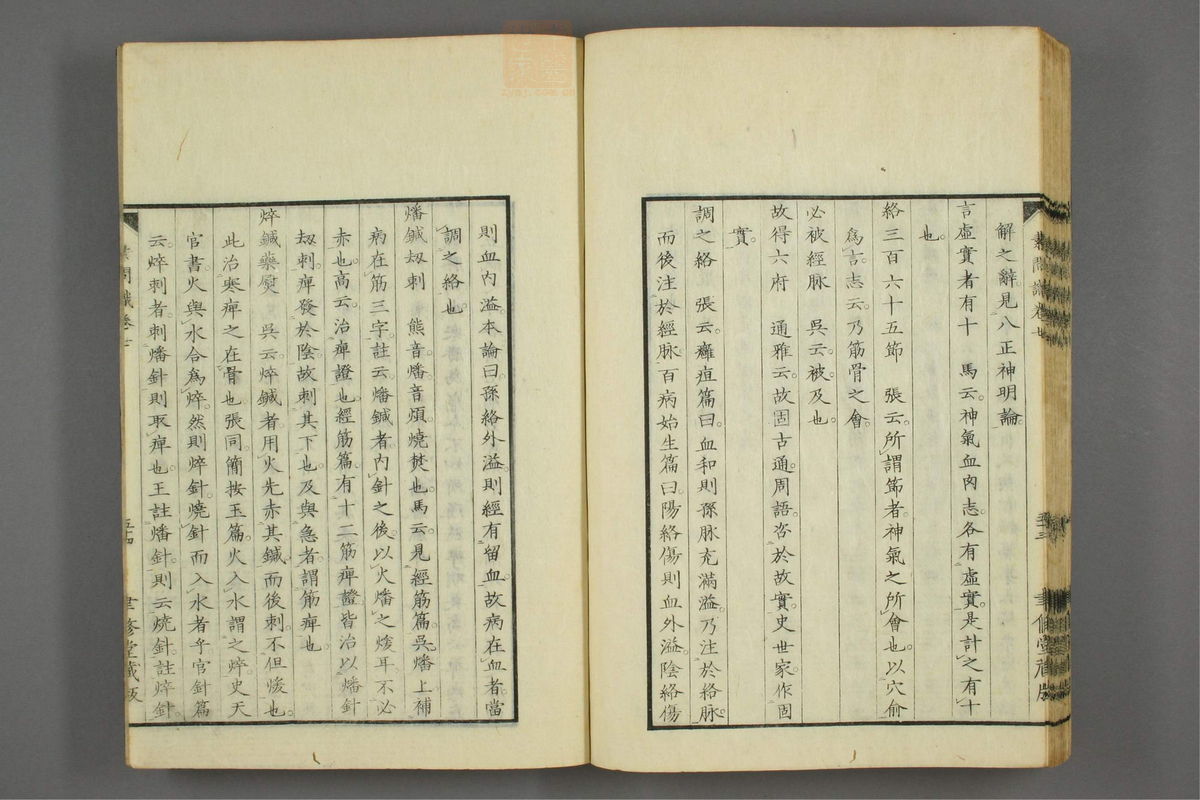 解之辭。見八正神明論
言虛實者有十　馬云。神氣血肉志。各有虛實。是計之有十
也。
絡三百六十五節　張云。所謂節者。神氣之所會也。以穴俞
爲言。志云。乃筋骨之會。
必被經脉　吳云。被。及也。
故得六府　通雅云。故固古通。周語。咨於故實。史世家。作固
實。
調之絡　張云。癰疽篇曰。血和則孫脉充滿溢。乃注於絡脉。
而後注於經脉。百病始生篇曰。陽絡傷則血外溢。陰絡傷
則血內溢。本論曰。孫絡外溢。則經有留血。故病在血者。當
調之絡也。
燔鍼刼刺　熊音。燔音煩。燒焚也。馬云。見經筋篇。吳燔上補
病在筋三字。註云。燔鍼者。內針之後。以火燔之煖耳。不必
赤也。高云。治痺證也。經筋篇。有十二筋痺證。皆治以燔針
刼刺。痺發於陰。故刺其下也。及與急者。謂筋痺也。
焠鍼藥熨　吳云。焠鍼者。用火先赤其鍼而後刺。不但煖也。
此治寒痺之在骨也。張同。簡按玉篇。火入水謂之焠。史天
官書。火與水合爲焠。然則焠針。燒針而入水者乎。官針篇
云。焠刺者。刺燔針則取痺也。王註燔針。則云燒針。註焠針。
素問識卷七
五十四
聿修堂藏版